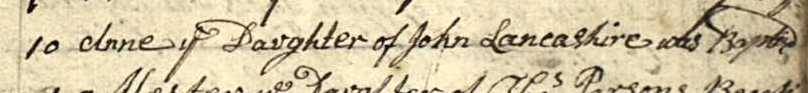 10 Anne ye Daughter of John Lancashire was Baptiz'd
ye Daughter of Thos Parsons